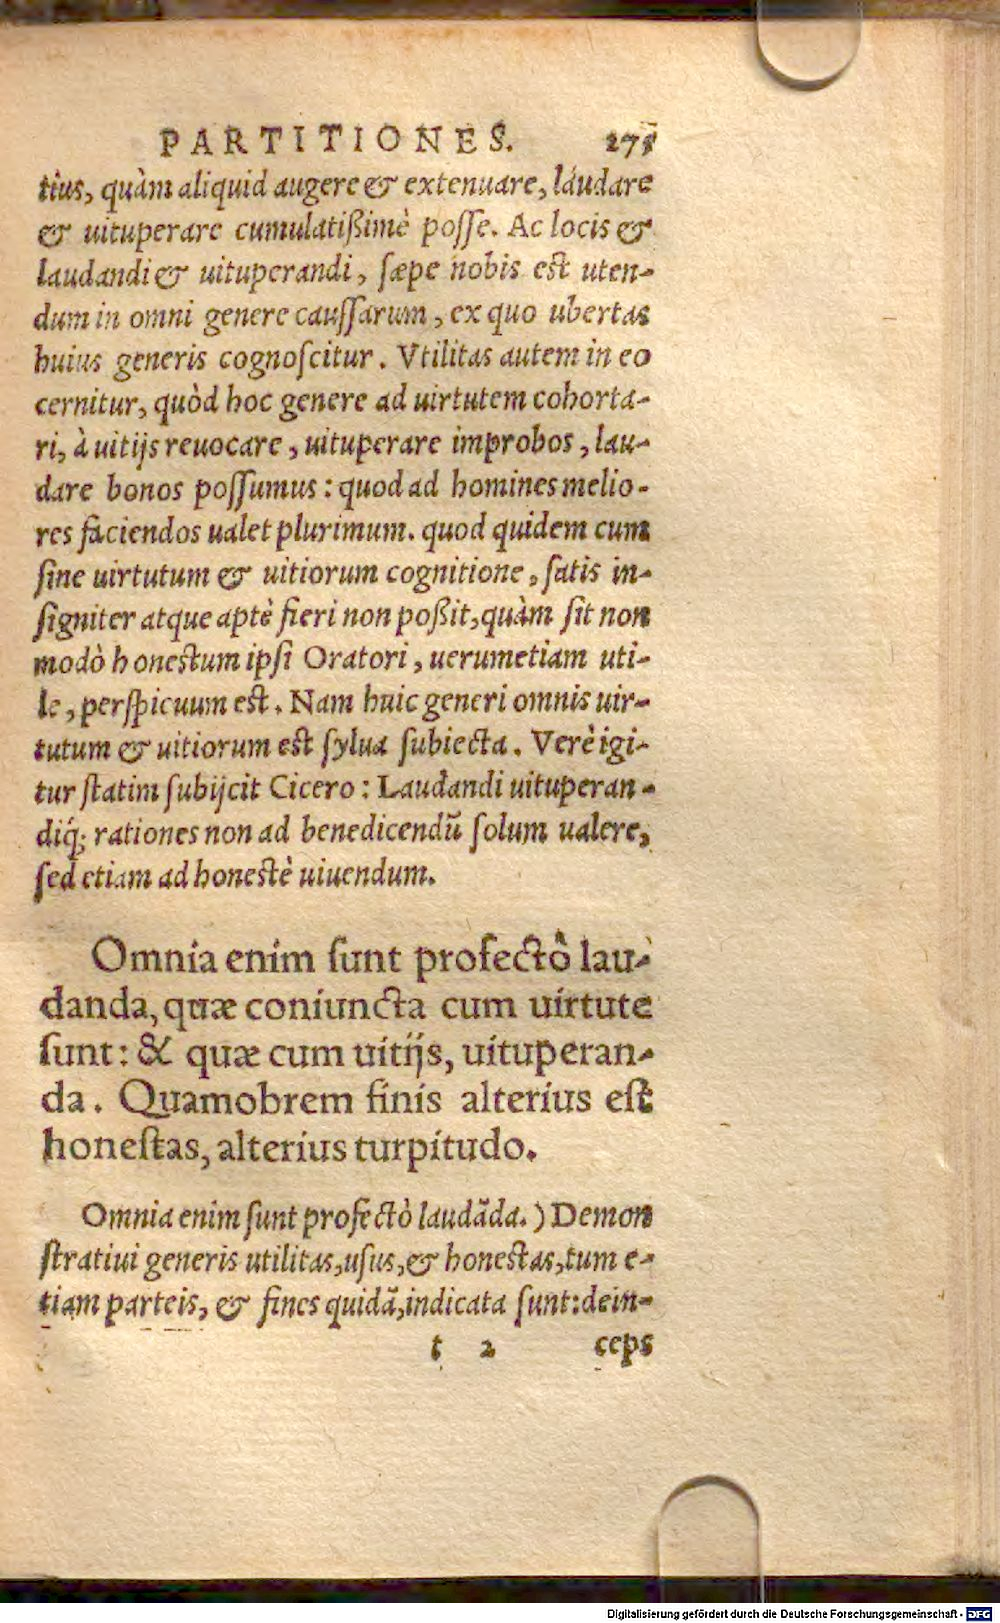 PARTITIONES. 275
tius, quàm aliquid augere & extenuare, laudare
& uituperare cumulatißimè posse. Ac locis &
laudandi & uituperandi, sæpe nobis est uten-
dum in omni genere caussarum, ex quo ubertas
huius generis cognoscitur. Vtilitas autem in eo
cernitur, quòd hoc genere ad uirtutem cohorta-
ri, à uitijs reuocare, uituperare improbos, lau-
dare bonos possumus: quod ad homines melio-
res faciendos ualet plurimum. quod quidem cum
sine uirtutum & uitiorum cognitione, satis in-
signiter atque aptè fieri non poßit, quàm sit non
modò honestum ipsi Oratori, uerumetiam uti-
le, perspicuum est. Nam huic generi omnis uir-
tutum & uitiorum est sylua subiecta. Verè igi-
tur statim subijcit Cicero: Laudandi uituperan-
diq́; rationes non ad benedicendũ solum ualere,
sed etiam ad honestè uiuendum.
Omnia enim sunt profectò lau-
danda, quæ coniuncta cum uirtute
sunt: & quæ cum uitijs, uituperan-
da. Quamobrem finis alterius est
honestas, alterius turpitudo.
Omnia enim sunt profectò laudãda.) Demon
stratiui generis utilitas, usus, & honestas, tum e-
tiam parteis, & fines quidã, indicata sunt: dein-
t 2 ceps
Digitalisierung gefördert durch die Deutsche Forschungsgemeinschaft - DFG